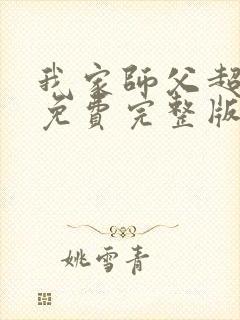 我家師父超
免費完整版
姚雪青